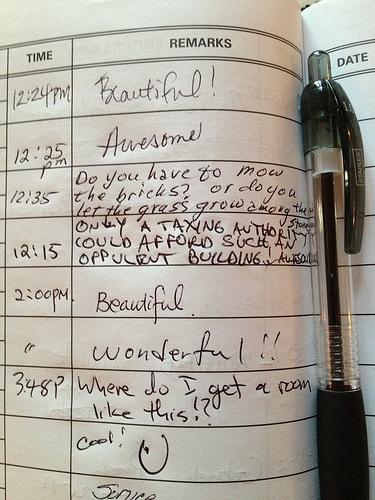 VISITOR'S NAM
TIME REMARKS DATE
12:24pm Beautiful!
12:25 pm Awesome
12:35 Do you have to mow
the bricks? or do you
let the grass grow among the
stones
12:15 ONLY A TAXING AUTHORITY
COULD AFFORD SUCH AN
OPPULENT BUILDING. AWESOME
2:00PM Beautiful.
" wonderful!!
3:48P Where do I get a room
like this!?
Cool!